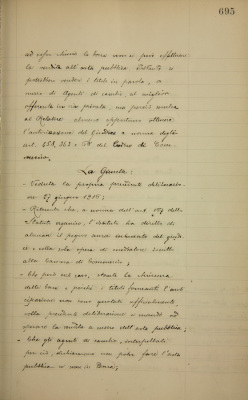 695
ad ogni chiusa la borsa non si può effettuare
la vendita all'asta pubblica
potrebbero vendere i titoli in parola, a
mezzo di Agenti di cambio, al migliore
offerente in via privata, ma perciò sembra
al Relatore almeno opportuno ottenere
l'autorizzazione del Giudice a norma degli
art. 458, 363 e 68 del Codice di Com-
mercio.
La Giunta:
- Veduta la propria precedente deliberazio-
ne 27 giugno
- Ritenuto che, a norma dell'art. 107 dello
Statuto organico, l'Istituto ha diritto di
alienare il pegno senza intervento del giudi-
ce e colla sola opera di mediatore iscritto
alla Camera di Commercio;
- Che però nel caso, stante la chiusura
delle borse e perchè i titoli formanti l'ant-
cipazione non sono quotati ufficialmente,
nella precedente deliberazione si mandò ad
operare la vendita a mezzo dell'asta pubblica;
- Che gli agenti di cambio, interpellati
per ciò, dichiararono non poter fare l'asta
pubblica a mezzo di Borsa;